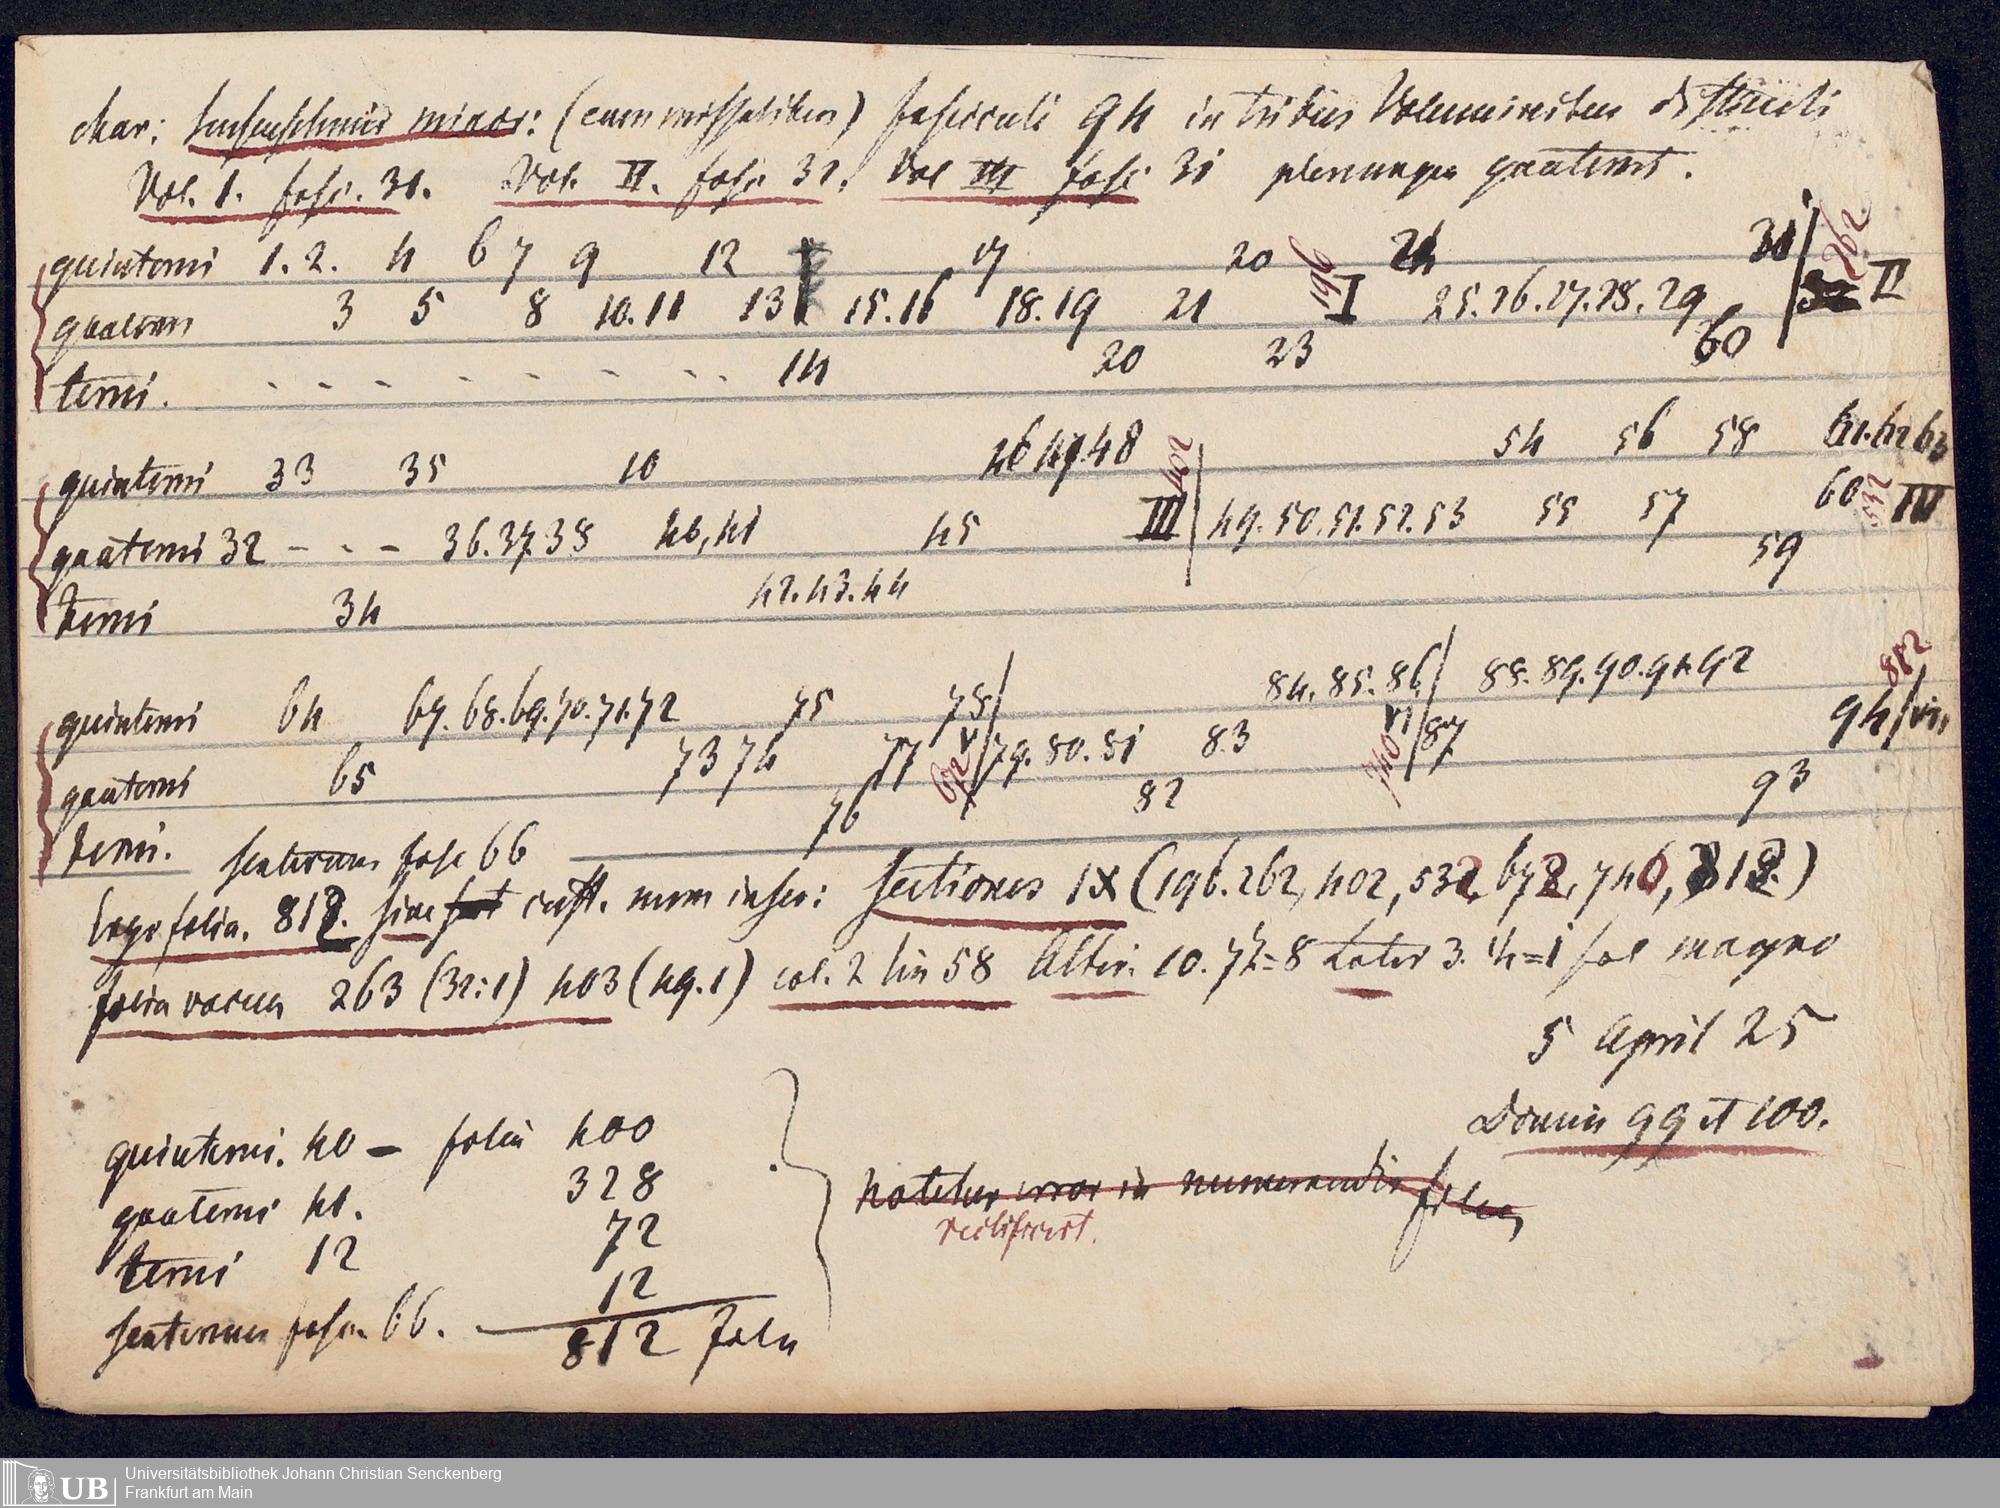 char: Sensenschmid minor: (cum missalibus) fasciculi 94 in tribus Voluminibus distincti
Vol. 1. fasc. 31. Vol. II. fasc 32. Vol III fasc 31 plerumque quaterni.
quinterni 1. 2. 4 6 7 9 12 17 20 196 24 31 262
quaterni 3 5 8 10. 11 13 15. 16 18. 19 21 I 25. 26. 27. 28. 29 II
terni. 14 20 23 60
quinterni 33 35 10 46 47. 48 402 54 56 58 61. 62 63
quaterni 32 - - - 36. 37. 38 40, 41 45 III 49. 50. 51. 52. 53 55 57 60 532 IV
terni 34 42. 43. 44 59
quinterni 64 67. 68. 69. 70. 71. 72 75 78 84. 85. 86 88. 89. 90. 91. 92 812
quaterni 65 73 74 77 672 V 79. 80. 81 83 740 VI 87 94
terni. 76 82 93
senternus fasc 66
Ergo folia. 812. sine cust. num inser: Sectiones IX (196. 262, 402, 532, 672, 740, 812.)
folia vacua 263 (32:1) 403 (49.1) col. 2 lin 58 Alter: 10. 74 = 8 Later 3. 4 = 1 fol magno
5 April 25
quinterni. 40 - folia 400
99 et 100.
quaterni 41. 328
notetur error in numerandis foliis
rectificat.
terni 12 72
senternus fasc. 66. 12
812 folia
Universitätsbibliothek Johann Christian Senckenberg
UB Frankfurt am Main